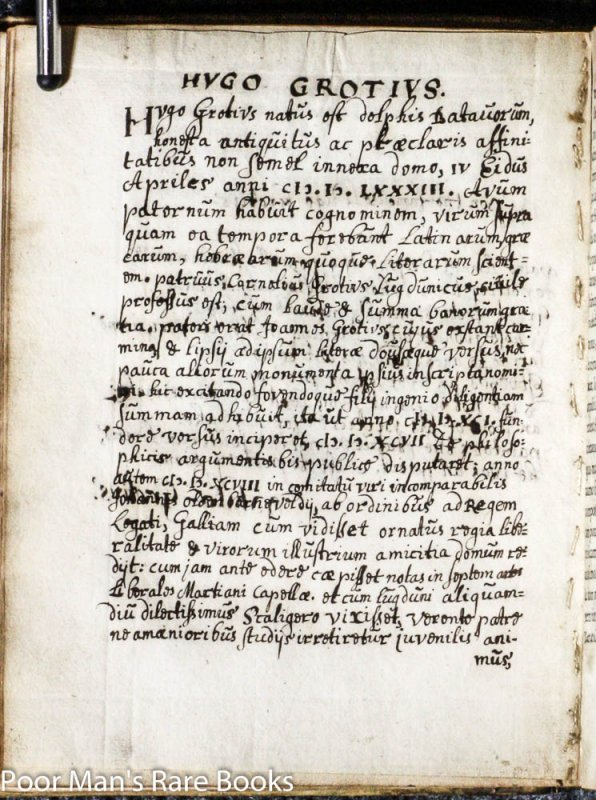 HVGO GROTIVS.
Hugo Grotivs natus est dolphis Batavorum,
honesta antiquitus ac præclaris affini-
tatibus non semel innexa domo, IV Eidus
Apriles anni CIↃ.IↃ. LXXXIII. Avum
paternum habuit cognominem, virum supra
quam ea tempora ferebant Latinarum, græ
carum, hebræarum quoque Literarum scient-
em. patruus, Cornelius Grotius Lugduni cuius civile
professus est, cum laude & summa bavorum gra
tia. pater erat Joannes Grotius, cujus extant car
mina & Lipsij ad ipsum literæ dousæque versus, nec
pauca aliorum monumenta ipsius inscripta nomi-
ni. hic excitando fovendoque filij ingenio diligentiam
summam adhibuit, ita ut anno CIↃ.IↃ.XCI. fun-
dere versus inciperet, CIↃ.IↃ.XCVII de philoso-
phicis argumentis bis publice disputaret; anno
autem CIↃ.IↃ.XCVIII in comitatu viri incomparabilis
Johannis oldenbarnevoldij, ab ordinibus ad Regem
Legati, Galliam cum vidisset ornatus regia libe-
ralitate & virorum illustrium amicitia domum re
dijt: cum jam ante edere cæpisset notas in septem artes
Liberales Martiani Capellæ. et cum Lugduni aliquam-
diu dilectissimus Scaligero vixisset, verente patre
ne amænioribus studijs irretiretur juvenilis ani-
mus,
Poor Man's Rare Books